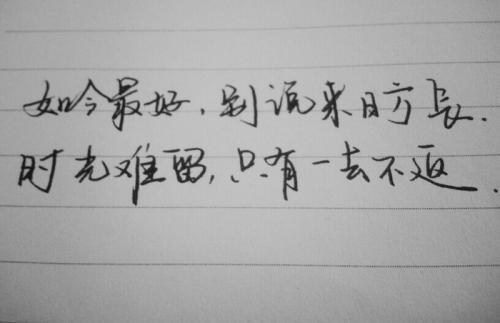 如今最好，别说来日方長.
时光难留，只有一去不返.